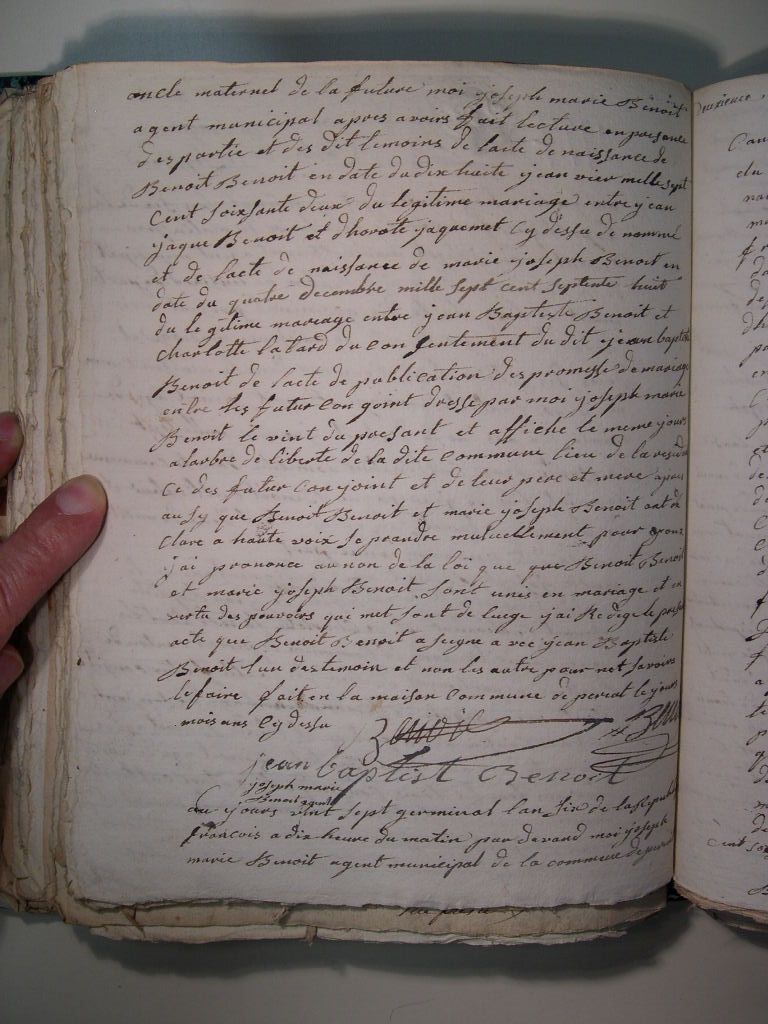 oncle maternel de la future moi joseph marie Benoit
agent municipal apres avoirs fait lecture en presance
des partie et des dit temoins de lacte de naissance de
Benoit Benoit en date du dix huite jean vier mille sept
Cent soixsante deux du legitime mariage entre jean
jaque Benoit et dhorote jaquemet Cy dessu de nommé
et de lacte de naissance de marie joseph Benoit en
date du quatre decembre mille sept cent septente huit
du le gitime mariage entre jean Baptiste Benoit et
Charlotte latard du Con sentement du dit jean baptiste
Benoit de lacte de publication des promesse de mariage
entre les futur Con goint dresse par moi joseph marie
Benoit le vint du presant et affiche le meme jours
a larbre de liberte de la dite Commune lieu de la residen
Ce des futur Conjoint et de leur pere et mere apres
aussy que Benoit Benoit et marie joseph Benoit ont de
Clare a haute voix se prandre mutuellement pour epoux
jai prononce au non de la loi que que Benoit Benoit
et marie joseph Benoit sont unis en mariage et en
vertu des pouvoirs qui met sont de luege jai Redige le presen
acte que Benoit Benoit a seigne a vec jean Baptiste
Benoit lun des temoin et non les autre pour net savoirs
le faire fait en la maison Commune de le jours
mois ans Cy dessu Benoit
jean baptist Benoit
joseph marie
Benoit agent
au jours vint sept germinal lan six de la Republi
francois a dix heure du matin par devand moi joseph
marie Benoit agent municipal de la commune de